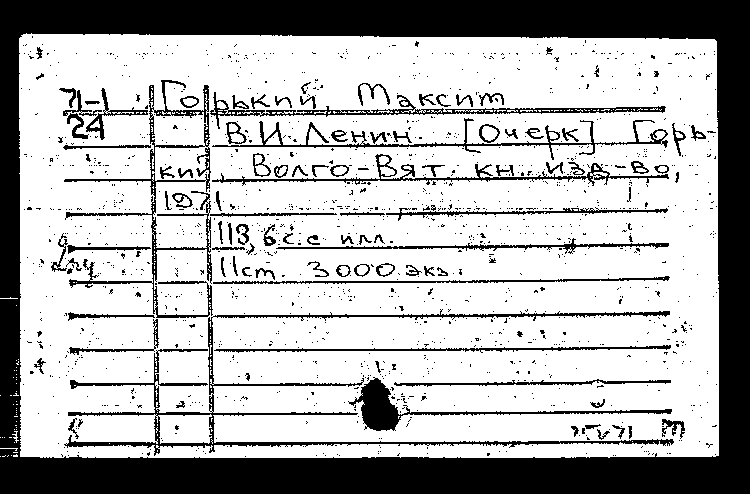 71-1 Горький, Максим
24 В.И. Ленин. [Очерк] Горь-
кий, Волго-Вят. кн. изд-во,
1971.
113, 6 с. с илл.
11 ст. 3000 экз.